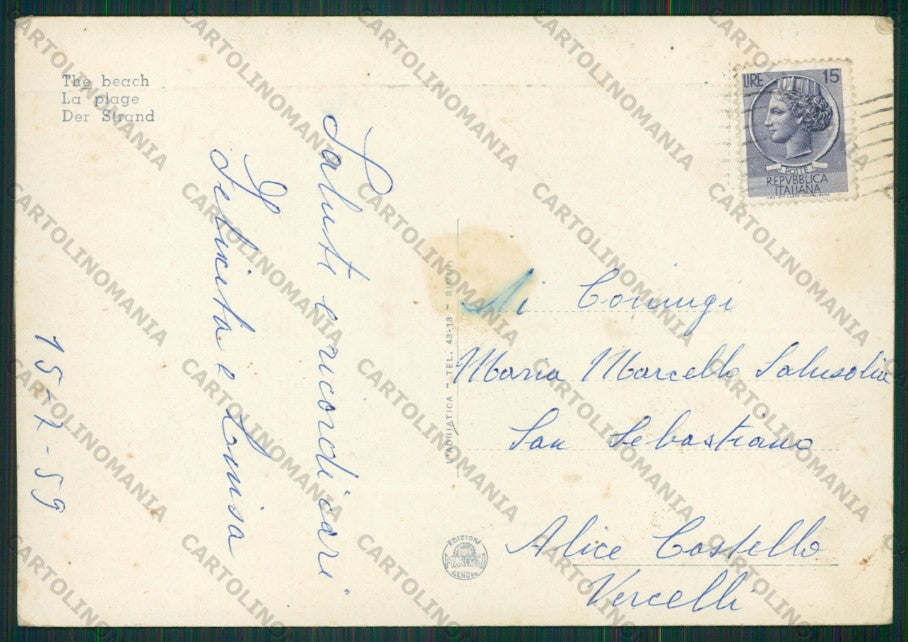 The beach
La plage
Der Strand
LIRE 15
POSTE
REPVBBLICA
ITALIANA
Saluti e ricordi cari
Felicita e Luisa
15-7-59
Ai Coniugi
Maria Marcello Salussolia
San Sebastiano
Alice Castello
Vercelli
L'ADRIATICA - TEL. 48-18 - RIMINI
EDIZIONI
GENOVA
CARTOLINOMANIA